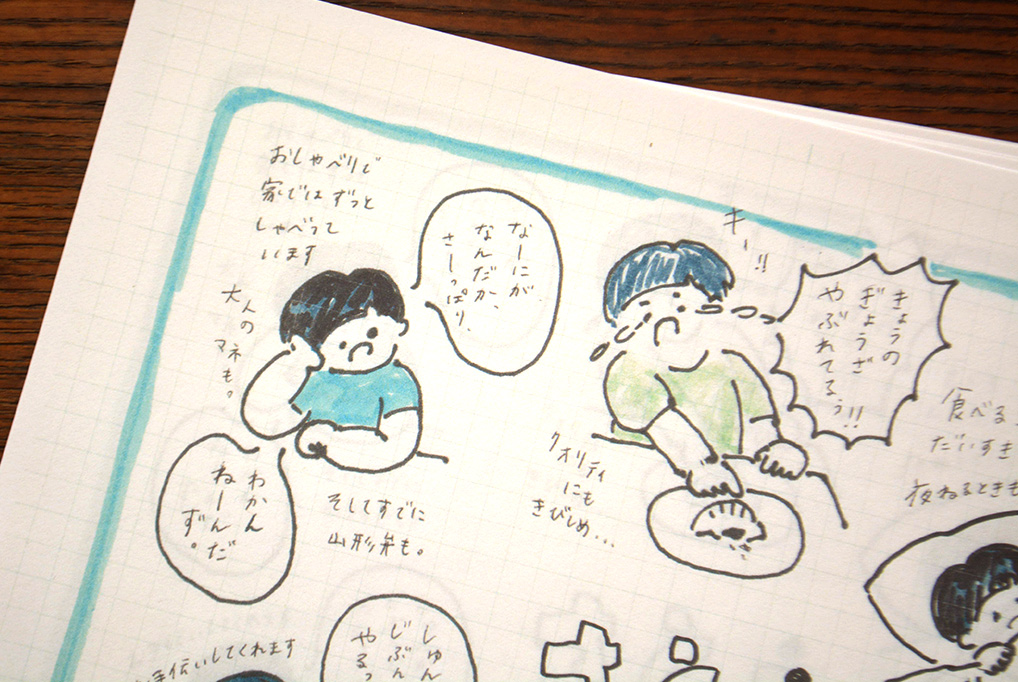 おしゃべりで
家ではずっと
しゃべって
います
なーにが
なんだか、
さーっぱり、
大人の
マネも。
わかん
ねーんだ
ず。
そしてすでに
山形弁も。
キー!!
きょうの
ぎょうざ
やぶれてるぅ!!
クオリティ
にも
きびしめ...
食べる、
だいすき
夜ねるときも
手伝いしてくれます
しゅん
じぶん
やるっ